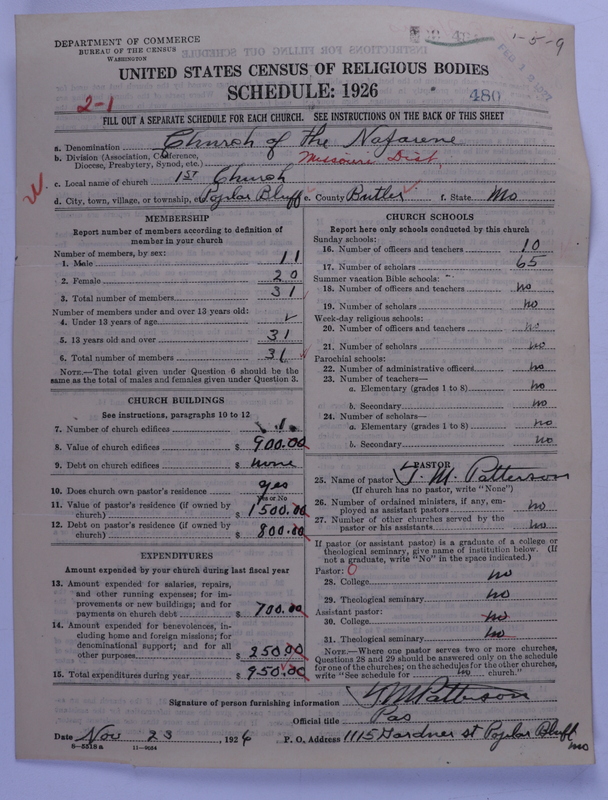 DEPARTMENT OF COMMERCE
BUREAU OF THE CENSUS
WASHINGTON
1-5-9
UNITED STATES CENSUS OF RELIGIOUS BODIES
SCHEDULE: 1926
2-1
480
FILL OUT A SEPARATE SCHEDULE FOR EACH CHURCH. SEE INSTRUCTIONS ON THE BACK OF THIS SHEET
a. Denomination Church of the Nazarene
b. Division (Association, Conference, Diocese, Presbytery, Synod, etc.) Missouri Dist.
c. Local name of church 1st Church
d. City, town, village, or township, etc. Poplar Bluff e. County Butler f. State Mo
MEMBERSHIP
Report number of members according to definition of member in your church
Number of members, by sex:
1. Male 11
2. Female 20
3. Total number of members 31
Number of members under and over 13 years old:
4. Under 13 years of age ✓
5. 13 years old and over 31
6. Total number of members 31
NOTE.—The total given under Question 6 should be the same as the total of males and females given under Question 3.
CHURCH BUILDINGS
See instructions, paragraphs 10 to 12
7. Number of church edifices 1
8. Value of church edifices $ 900.00
9. Debt on church edifices $ none
10. Does church own pastor's residence yes
Yes or No
11. Value of pastor's residence (if owned by church) $ 1500.00
12. Debt on pastor's residence (if owned by church) $ 800.00
EXPENDITURES
Amount expended by your church during last fiscal year
13. Amount expended for salaries, repairs, and other running expenses; for improvements or new buildings; and for payments on church debt $ 700.00
14. Amount expended for benevolences, including home and foreign missions; for denominational support; and for all other purposes $ 250.00
15. Total expenditures during year $ 950.00
CHURCH SCHOOLS
Report here only schools conducted by this church
Sunday schools:
16. Number of officers and teachers 10
17. Number of scholars 65
Summer vacation Bible schools:
18. Number of officers and teachers no
19. Number of scholars no
Week-day religious schools:
20. Number of officers and teachers no
21. Number of scholars no
Parochial schools:
22. Number of administrative officers no
23. Number of teachers—
a. Elementary (grades 1 to 8) no
b. Secondary no
24. Number of scholars—
a. Elementary (grades 1 to 8) no
b. Secondary no
PASTOR
25. Name of pastor T. M. Patterson
(If church has no pastor, write "None")
26. Number of ordained ministers, if any, employed as assistant pastors no
27. Number of other churches served by the pastor or his assistants no
If pastor (or assistant pastor) is a graduate of a college or theological seminary, give name of institution below. (If not a graduate, write "No" in the space indicated.)
Pastor: 0
28. College no
29. Theological seminary no
Assistant pastor:
30. College no
31. Theological seminary no
NOTE.—Where one pastor serves two or more churches, Questions 28 and 29 should be answered only on the schedule for one of the churches; on the schedules for the other churches, write "See schedule for no church."
Signature of person furnishing information T M Patterson
Official title Pas
Date Nov 23, 1926 P. O. Address 1115 Gardner st Poplar Bluff Mo
8—5518a 11—9024